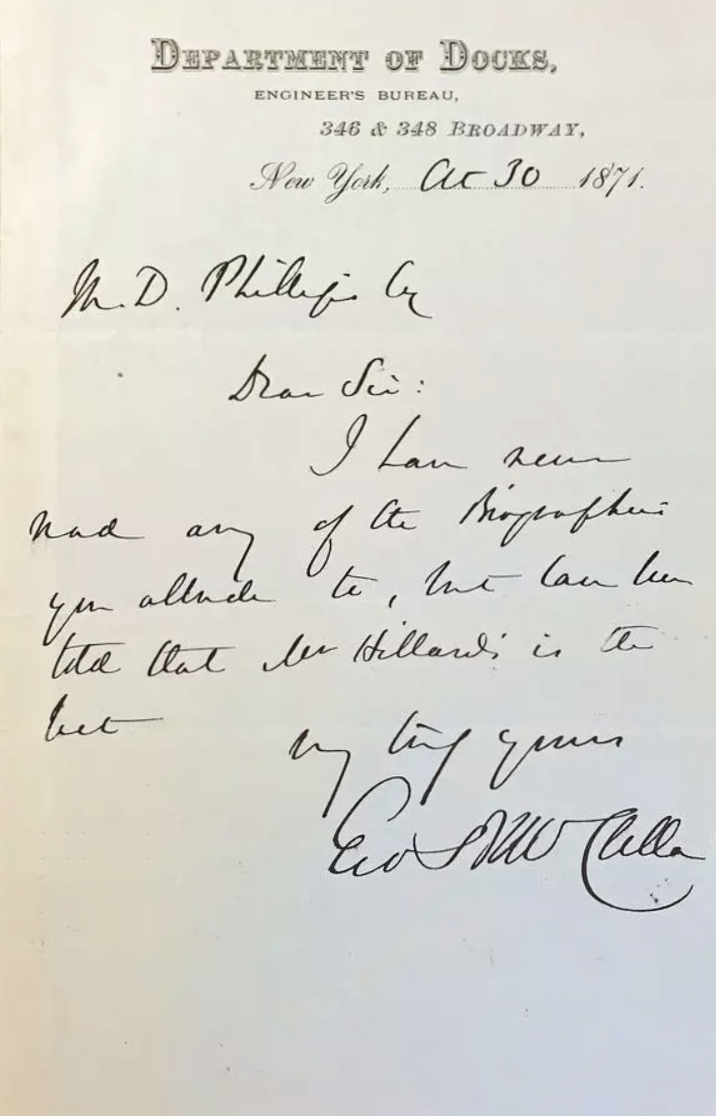 DEPARTMENT OF DOCKS,
ENGINEER'S BUREAU,
346 & 348 BROADWAY,
New York, Oct 30 1871.
M. D. Phillips Esq
Dear Sir:
I have never
read any of the Biographies
you allude to, but have been
told that Mr Hillard's is the
best
Very truly yours
Geo B McClellan